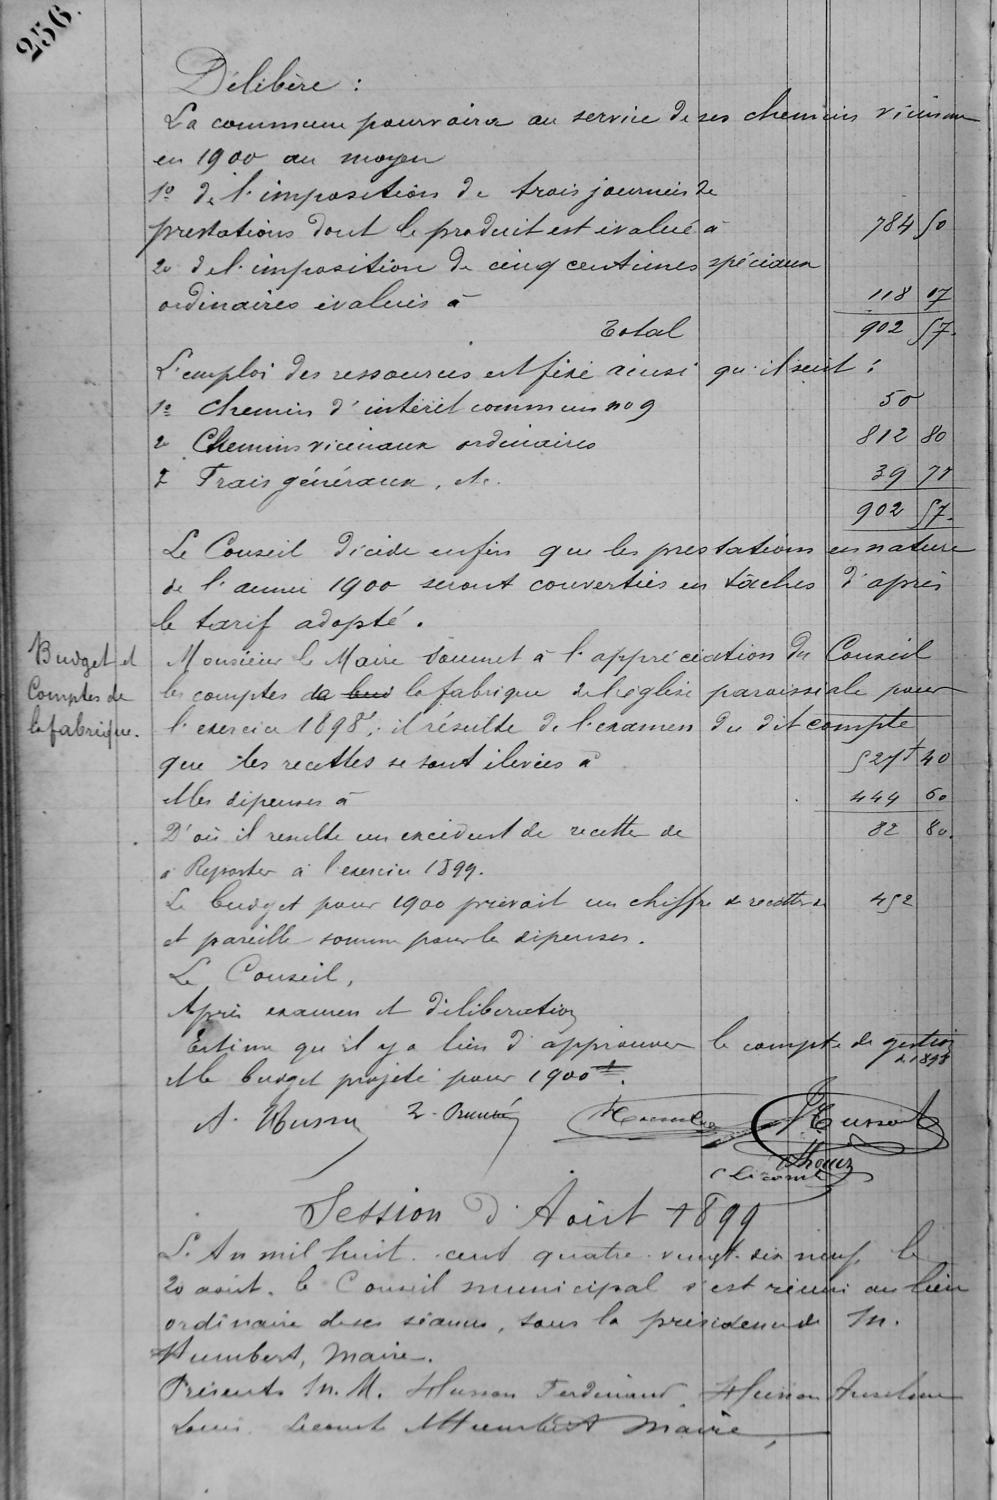 256.
Délibère :
La commune pourvoira au service de ses chemins vicinaux
en 1900 au moyen
1° de l'imposition de trois journées de
prestations dont le produit est évalué à 784 50
2° de l'imposition de cinq centimes spéciaux
ordinaires évalués à 118 07
Total 902 57.
L'emploi des ressources est fixé ainsi qu'il suit :
1° Chemin d'intérêt commun no 9 50
2° Chemins vicinaux ordinaires 812 80
3° Frais généraux, etc. 39 77
902 57.
Le Conseil décide enfin que les prestations en nature
de l'année 1900 seront converties en tâches d'après
le tarif adopté.
Budget et
Comptes de
la fabrique.
Monsieur le Maire soumet à l'appréciation du Conseil
les comptes de la fabrique de l'église paroissiale pour
l'exercice 1898, il résulte de l'examen du dit compte
que les recettes se sont élevées à 527f 40
et les dépenses à 444 60
D'où il résulte un excédent de recette de 82 80.
à Reporter à l'exercice 1899.
Le budget pour 1900 prévoit un chiffre de recettes de 452
et pareille somme pour les dépenses.
Le Conseil,
Après examen et délibération
Estime qu'il y a lieu d'approuver le compte de gestion
de 1898
et le budget projeté pour 1900.
A. Husson
Husson
Thouez
Lecomte
Session d'Août 1899
L'An mil huit cent quatre-vingt-dix neuf, le
20 août, le Conseil municipal s'est réuni au lieu
ordinaire de ses séances, sous la présidence de M.
Humbert, Maire.
Présents M.M. Husson Ferdinand, Husson Anselme
Louis Lecomte et Humbert Maire,